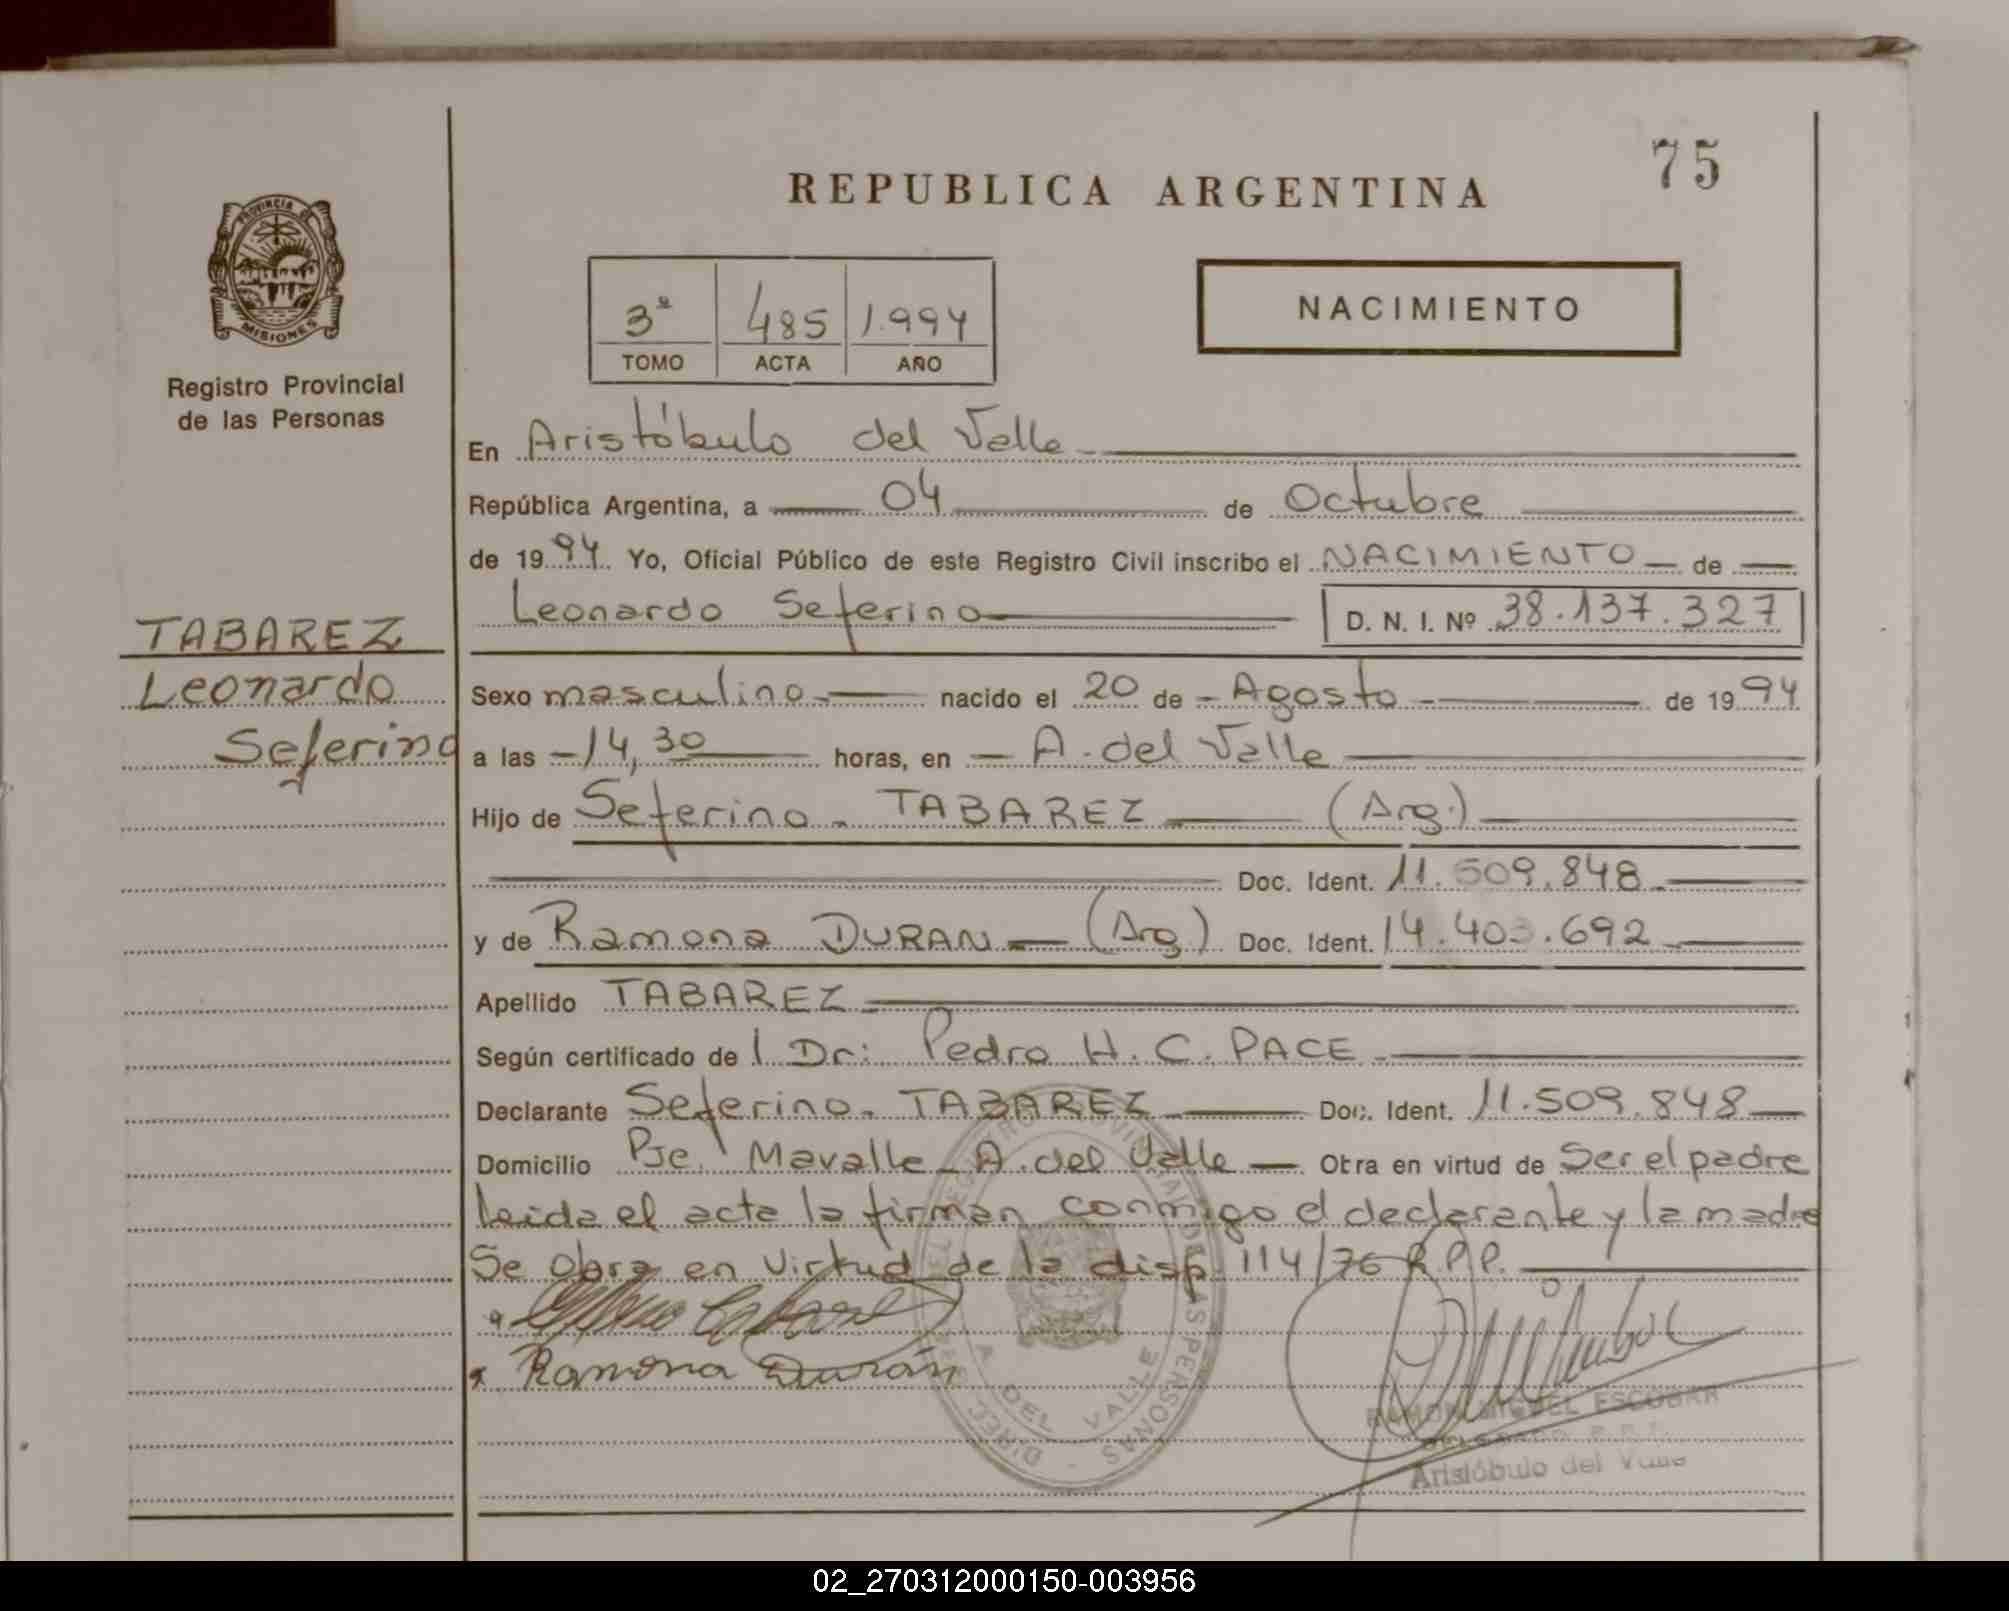 75
REPUBLICA ARGENTINA
PROVINCIA DE
MISIONES
Registro Provincial
de las Personas
3º 485 1.994
TOMO ACTA AÑO
NACIMIENTO
En Aristóbulo del Valle
República Argentina, a 04 de Octubre
de 1994 Yo, Oficial Público de este Registro Civil inscribo el NACIMIENTO de
Leonardo Seferino D. N. I. Nº 38.137.327
TABAREZ
Leonardo
Seferino
Sexo masculino nacido el 20 de Agosto de 1994
a las 14,30 horas, en A. del Valle
Hijo de Seferino. TABAREZ (Arg.)
Doc. Ident. 11.509.848
y de Ramona DURAN (Arg) Doc. Ident. 14.403.692
Apellido TABAREZ
Según certificado de l Dr: Pedro H. C. PACE
Declarante Seferino. TABAREZ Doc. Ident. 11.509.848
Domicilio Pje. Mavalle A. del Valle Obra en virtud de Ser el padre
leida el acta la firman conmigo el declarante y la madre
Se obra en virtud de la disp 114/76 R.P.P.
Ramona Durán
DIREC. DEL REGISTRO PROVINCIAL DE LAS PERSONAS
A DEL VALLE
RAMON MIGUEL ESCOBAR
Aristóbulo del Valle
02_270312000150-003956